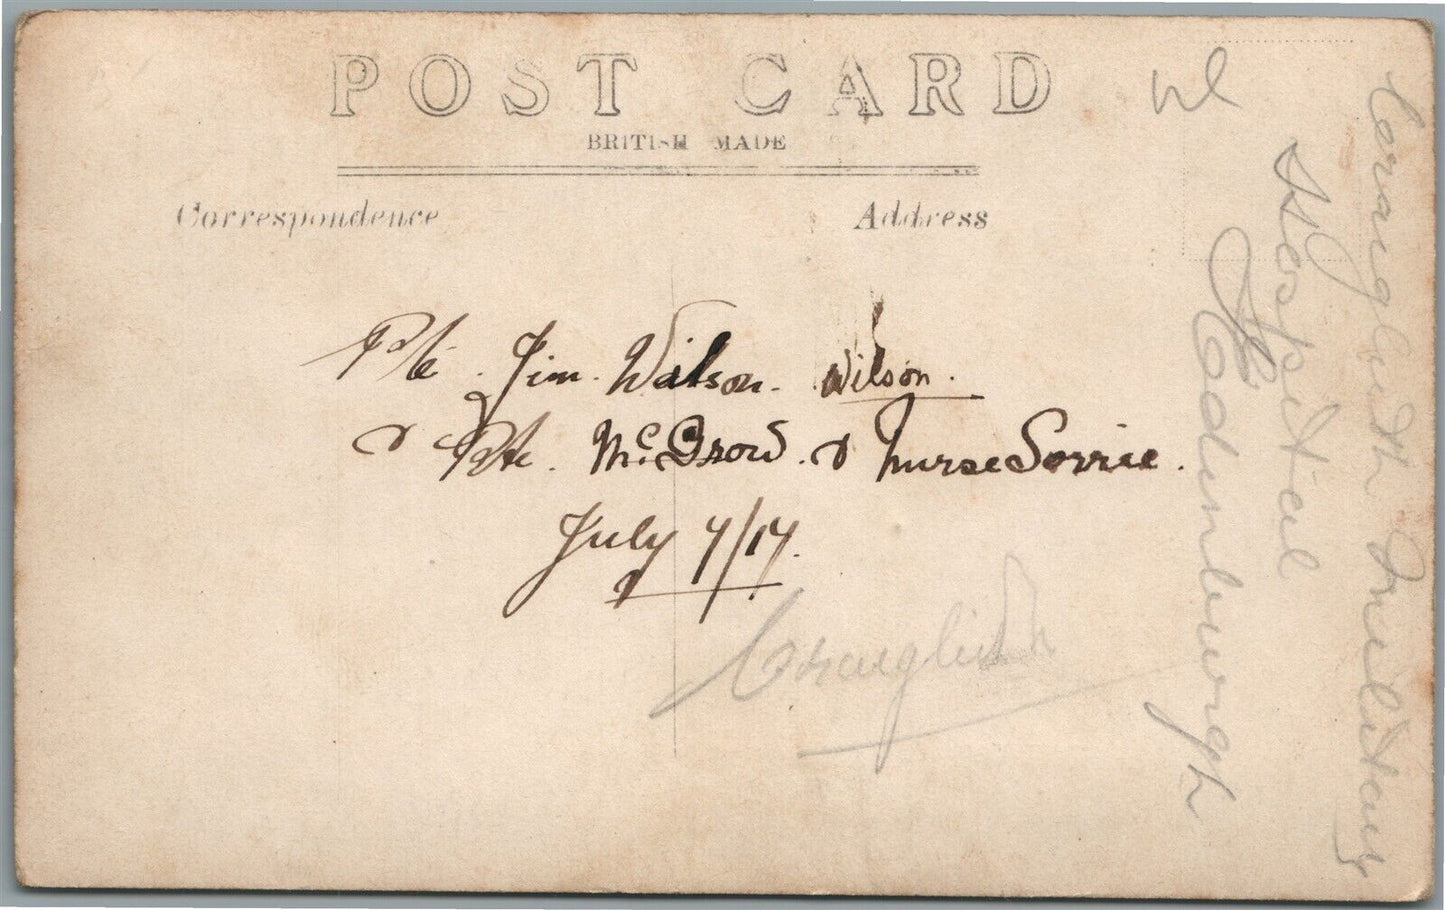 POST CARD
BRITISH MADE
Correspondence
Address
Pte. Jim. Wilson. Wilson.
& Pte. McGrow. & Nurse Sorrie.
July 7/17.
Craiglieth
Coraiglieth Military
Hospital
Edinburgh